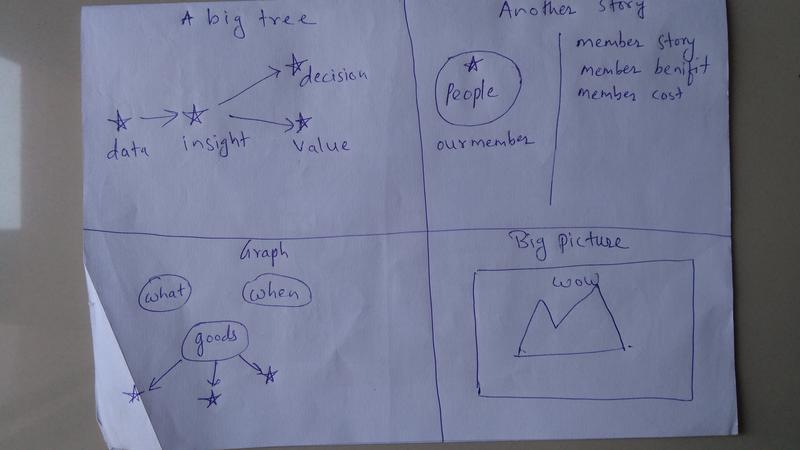 A big tree
decision
data
insight
value
Another story
People
our member
member story
member benifit
member cost
Graph
what
when
goods
Big picture
wow